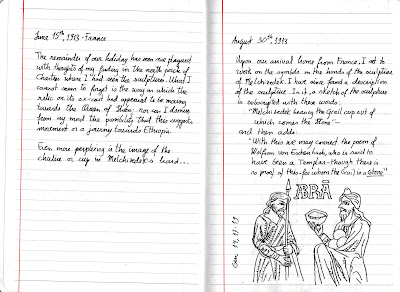 June 15th, 1913 - France
The remainder of our holiday has seen me plagued
with thoughts of my finding in the north porch of
Chartres where I had seen the sculptures. What I
cannot seem to forget is the way in which the
relic on its ox-cart had appeared to be moving
towards the Queen of Sheba; nor can I dismiss
from my mind the possibility that this suggests
movement or a journey towards Ethiopia.
Even more perplexing is the image of the
chalice or cup in Melchizedek's hand...
August 30th, 1913
Upon our arrival home from France, I set to
work on the symbols in the hands of the sculpture
of Melchizedek. I have since found a description
of the sculpture. In it, a sketch of the sculpture
is subscripted with these words:
"Melchizedek bearing the Grail cup out of
which comes the Stone" -
and then adds:
"With this we may connect the poem of
Wolfram von Eschenbach, who is said to
have been a Templar - though there is
no proof of this - for whom the Grail is a stone"
ABRĀ
Gen 14, 17-19